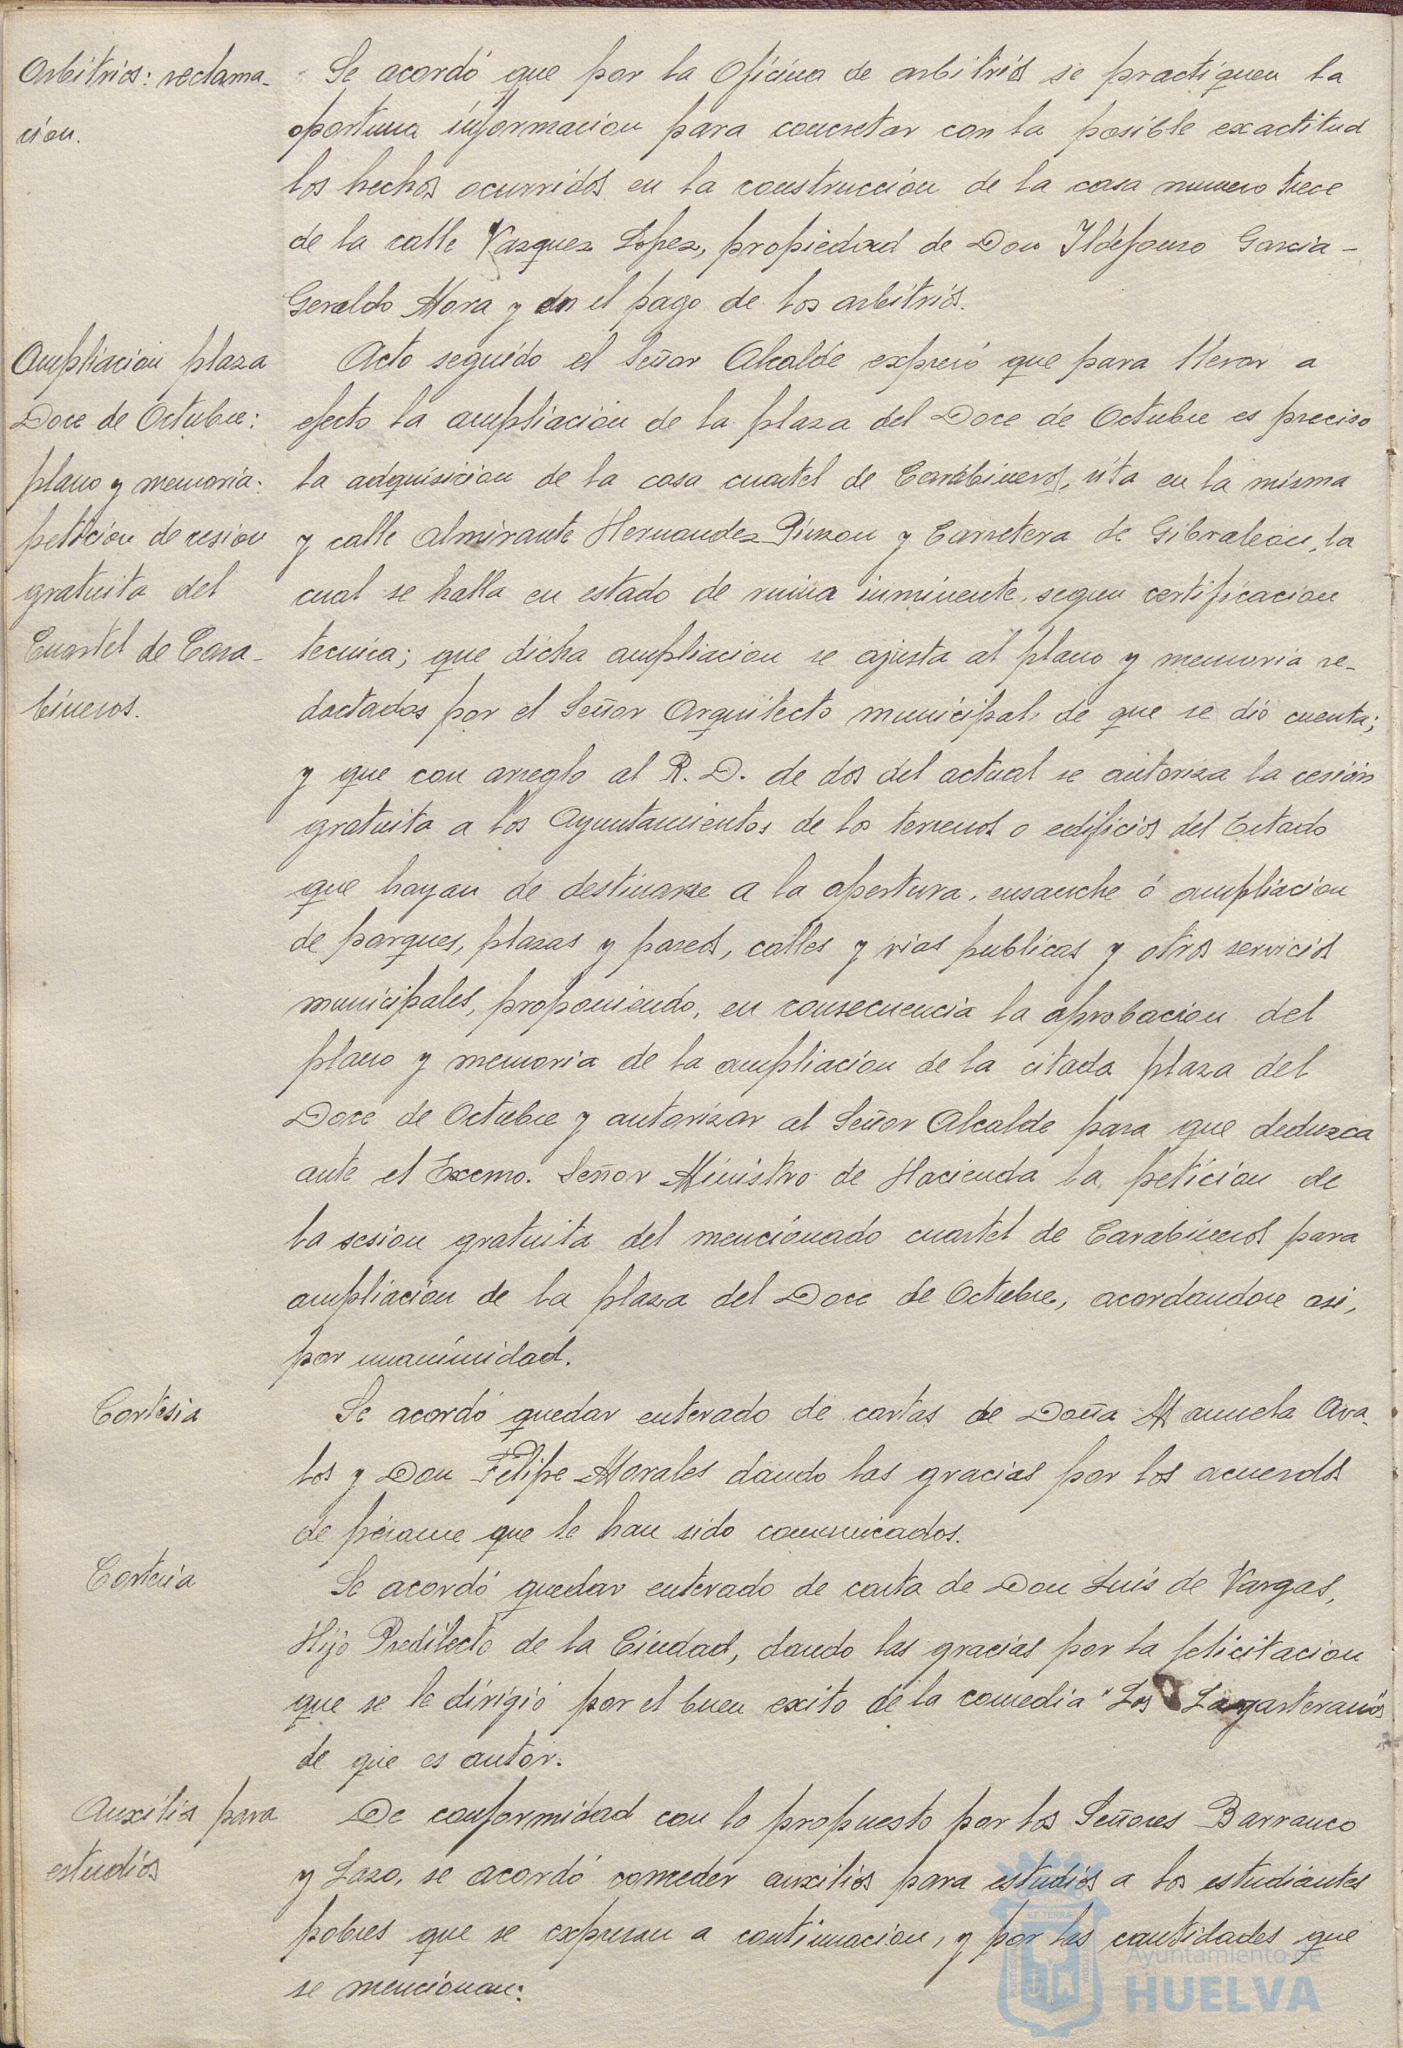 Arbitrios: reclama-
cion.
Se acordó que por la Oficina de arbitrios se practiquen la
oportuna informacion para concretar con la posible exactitud
los hechos ocurridos en la construcción de la casa numero trece
de la calle Vazquez Lopez, propiedad de Don Ildefonso Garcia-
Geraldo Mora y en el pago de los arbitrios.
Ampliacion plaza
Doce de Octubre:
plano y memoria:
petición de cesion
gratuita del
Cuartel de Cara-
bineros.
Acto seguido el Señor Alcalde expresó que para llevar a
efecto la ampliación de la plaza del Doce de Octubre es preciso
la adquisicion de la casa cuartel de Carabineros, sita en la misma
y calle Almirante Hernandez Pinzon y Carretera de Gibraleon, la
cual se halla en estado de ruina inminente, segun certificacion
tecnica; que dicha ampliacion se ajusta al plano y memoria re-
dactados por el Señor Arquitecto municipal, de que se dió cuenta;
y que con arreglo al R. D. de dos del actual se autoriza la cesión
gratuita a los Ayuntamientos de los terrenos o edificios del Estado
que hayan de destinarse a la apertura, ensanche ó ampliacion
de parques, plazas y paseos, calles y vias publicas y otros servicios
municipales, proponiendo, en consecuencia la aprobacion del
plano y memoria de la ampliacion de la citada plaza del
Doce de Octubre y autorizar al Señor Alcalde para que deduzca
ante el Excmo. Señor Ministro de Hacienda la peticion de
la sesion gratuita del mencionado cuartel de Carabineros para
ampliacion de la plaza del Doce de Octubre, acordandose asi,
por unanimidad.
Cortesia
Se acordó quedar enterado de cartas de Doña Manuela Ava-
los y Don Felipe Morales dando las gracias por los acuerdos
de pésame que le han sido comunicados.
Cortesia
Se acordó quedar enterado de carta de Don Luis de Vargas,
Hijo Predilecto de la Ciudad, dando las gracias por la felicitacion
que se le dirigió por el buen exito de la comedia "Los Lagarteranos"
de que es autor.
Auxilios para
estudios
De conformidad con lo propuesto por los Señores Barranco
y Lazo, se acordó conceder auxilios para estudios a los estudiantes
pobres que se expresan a continuacion, y por las cantidades que
se mencionan:
Ayuntamiento de
HUELVA